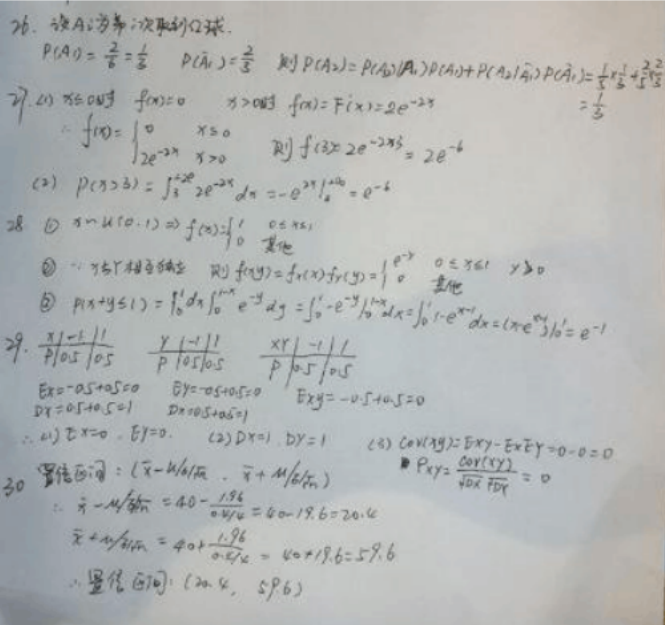 26. 设Ai为第i次取到红球.
P(A₁) = 2/6 = 1/3 P(Ā₁) = 2/3 则P(A₂) = P(A₂|A₁)P(A₁) + P(A₂|Ā₁)P(Ā₁) = 1/5 × 1/3 + 2/5 × 2/3
= 1/3
27. (1) x≤0时 f(x)=0 x>0时 f(x)=F'(x)=2e^{-2x}
∴ f(x) = { 0 x≤0
2e^{-2x} x>0 则 f(3) = 2e^{-2×3} = 2e^{-6}
(2) P(x>3) = ∫₃^{+∞} 2e^{-2x} dx = -e^{2x}|^{+∞} = e^{-6}
28. ① x~U(0.1) ⇒ f(x) = { 1 0≤x≤1
0 其他
② ∵ x与Y相互独立 则 f(xy) = fx(x)fy(y) = { e^{-y} 0≤x≤1 y≥0
0 其他
③ P(x+y≤1) = ∫₀¹dx∫₀^{1-x} e^{-y}dy = ∫₀¹ -e^{-y}|₀^{1-x} dx = ∫₀¹ 1-e^{x-1} dx = (x-e^{x-1})|₀¹ = e^{-1}
29. x -1 1 Y -1 1 XY -1 1
P 0.5 0.5 P 0.5 0.5 P 0.5 0.5
Ex=-0.5+0.5=0 EY=-0.5+0.5=0 Exy=-0.5+0.5=0
Dx=0.5+0.5=1 Dx=0.5+0.5=1
∴ (1) Ex=0. EY=0. (2) DX=1 DY=1 (3) Cov(xy)=Exy-ExEY=0-0=0
Pxy = cov(xy)/√DX√DY = 0
30 置信区间: (x̄-μ/σ/√n . x̄+μ/σ/√n)
∴ x̄-μ/σ/√n = 40 - 1.96/0.4/4 = 40-19.6=20.4
x̄+μ/σ/√n = 40 + 1.96/0.4/4 = 40+19.6=59.6
∴ 置信区间: (20.4, 59.6)